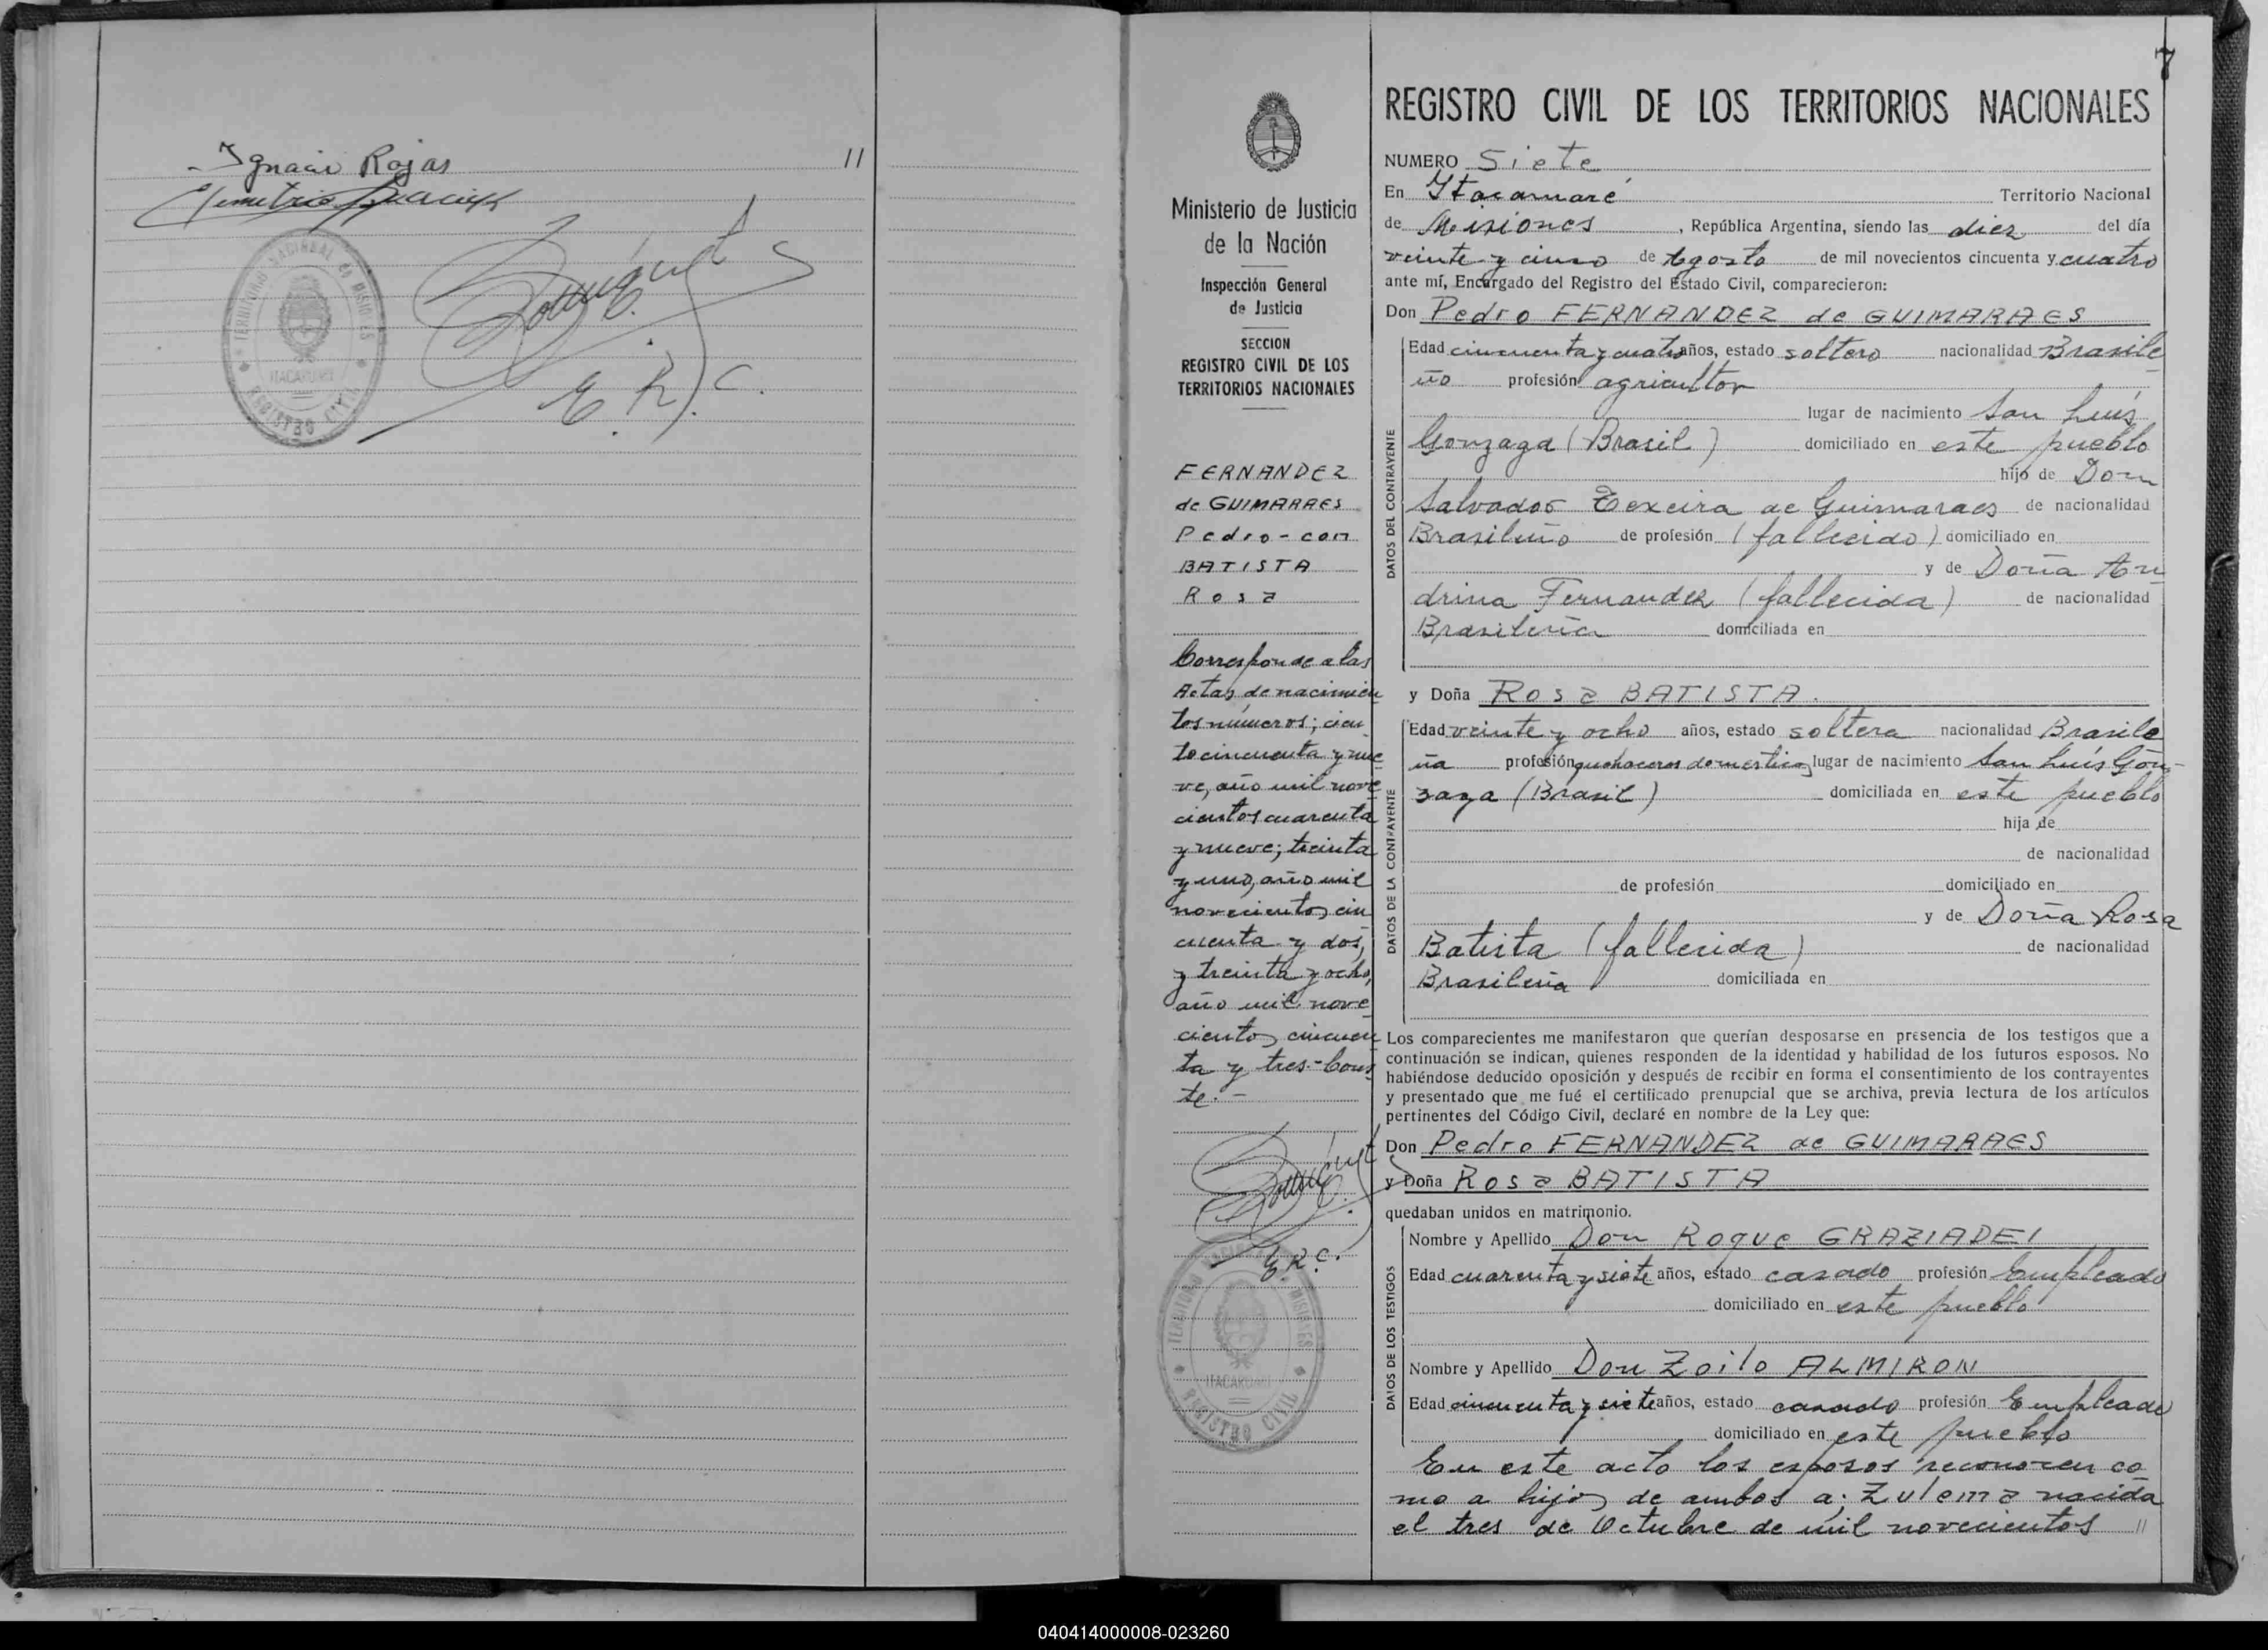 Ignacio Rojas 11
E. R. C.
TERRITORIO NACIONAL DE MISIONES
ITACARUARE
REGISTRO CIVIL
7
Ministerio de Justicia
de la Nación
Inspección General
de Justicia
SECCION
REGISTRO CIVIL DE LOS
TERRITORIOS NACIONALES
FERNANDEZ
de GUIMARAES
Pedro - con
BATISTA
Rosa
Corresponde a las
Actas de nacimien
tos números; cien
to cincuenta y nue
ve, año mil nove
cientos cuarenta
y nueve; treinta
y uno, año mil
novecientos cin
cuenta y dos,
y treinta y ocho,
año mil nove
cientos cincuen
ta y tres - Cons
te. -
E. R. C.
TERRITORIO NACIONAL DE MISIONES
ITACARUARE
REGISTRO CIVIL
REGISTRO CIVIL DE LOS TERRITORIOS NACIONALES
NUMERO Siete
En Itacaruaré Territorio Nacional
de Misiones, República Argentina, siendo las diez del día
veinte y cinco de Agosto de mil novecientos cincuenta y cuatro
ante mí, Encargado del Registro del Estado Civil, comparecieron:
Don Pedro FERNANDEZ de GUIMARAES
DATOS DEL CONTRAYENTE
Edad cincuenta y cuatro años, estado soltero nacionalidad Brasile
ño profesión agricultor
lugar de nacimiento San Luís
Gonzaga (Brasil) domiciliado en este pueblo
hijo de Don
Salvador Texeira de Guimaraes de nacionalidad
Brasileño de profesión (fallecido) domiciliado en
y de Doña An
drina Fernandez (fallecida) de nacionalidad
Brasileña domiciliada en
y Doña Rosa BATISTA.
DATOS DE LA CONTRAYENTE
Edad veinte y ocho años, estado soltera nacionalidad Brasile
ña profesión quehaceres domesticos lugar de nacimiento San Luís Gon-
zaga (Brasil) domiciliada en este pueblo
hija de
de nacionalidad
de profesión domiciliado en
y de Doña Rosa
Batista (fallecida) de nacionalidad
Brasileña domiciliada en
Los comparecientes me manifestaron que querían desposarse en presencia de los testigos que a
continuación se indican, quienes responden de la identidad y habilidad de los futuros esposos. No
habiéndose deducido oposición y después de recibir en forma el consentimiento de los contrayentes
y presentado que me fué el certificado prenupcial que se archiva, previa lectura de los artículos
pertinentes del Código Civil, declaré en nombre de la Ley que:
Don Pedro FERNANDEZ de GUIMARAES
y Doña Rosa BATISTA
quedaban unidos en matrimonio.
DATOS DE LOS TESTIGOS
Nombre y Apellido Don Roque GRAZIADEI
Edad cuarenta y siete años, estado casado profesión Empleado
domiciliado en este pueblo
Nombre y Apellido Don Zoilo ALMIRON
Edad cincuenta y siete años, estado casado profesión Empleado
domiciliado en este pueblo
En este acto los esposos reconocen co
mo a hijos de ambos a: Zulema nacida
el tres de Octubre de mil novecientos 11
040414000008-023260